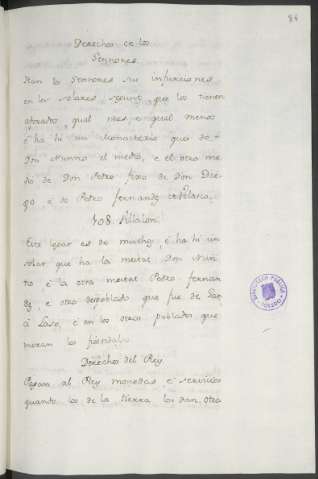 86
Derechos de los
Sennores
Han los Sennores su infurciones
en los solares segunt que los tienen
aforados, qual mas, e qual menos
é ha hi un Monasterio que de
Don Nunno el medio, e el otro me
dio de Don Pedro fixo de Don Die
go, é de Pedro fernandz
408.
Este logar es de muchos, é ha hi un
solar que ha la meitat Don Nun
no é la otra meitat Pedro fernan
dz, e otro despoblado que fue de Gar
ci Laso, é en los otros poblados que
moran los fijosdalgo
Derechos del Rey
Pagan al Rey monedas, e servicios
quando los de la tierra los dan, otra
BIBLIOTECA PUBLICA
TOLEDO